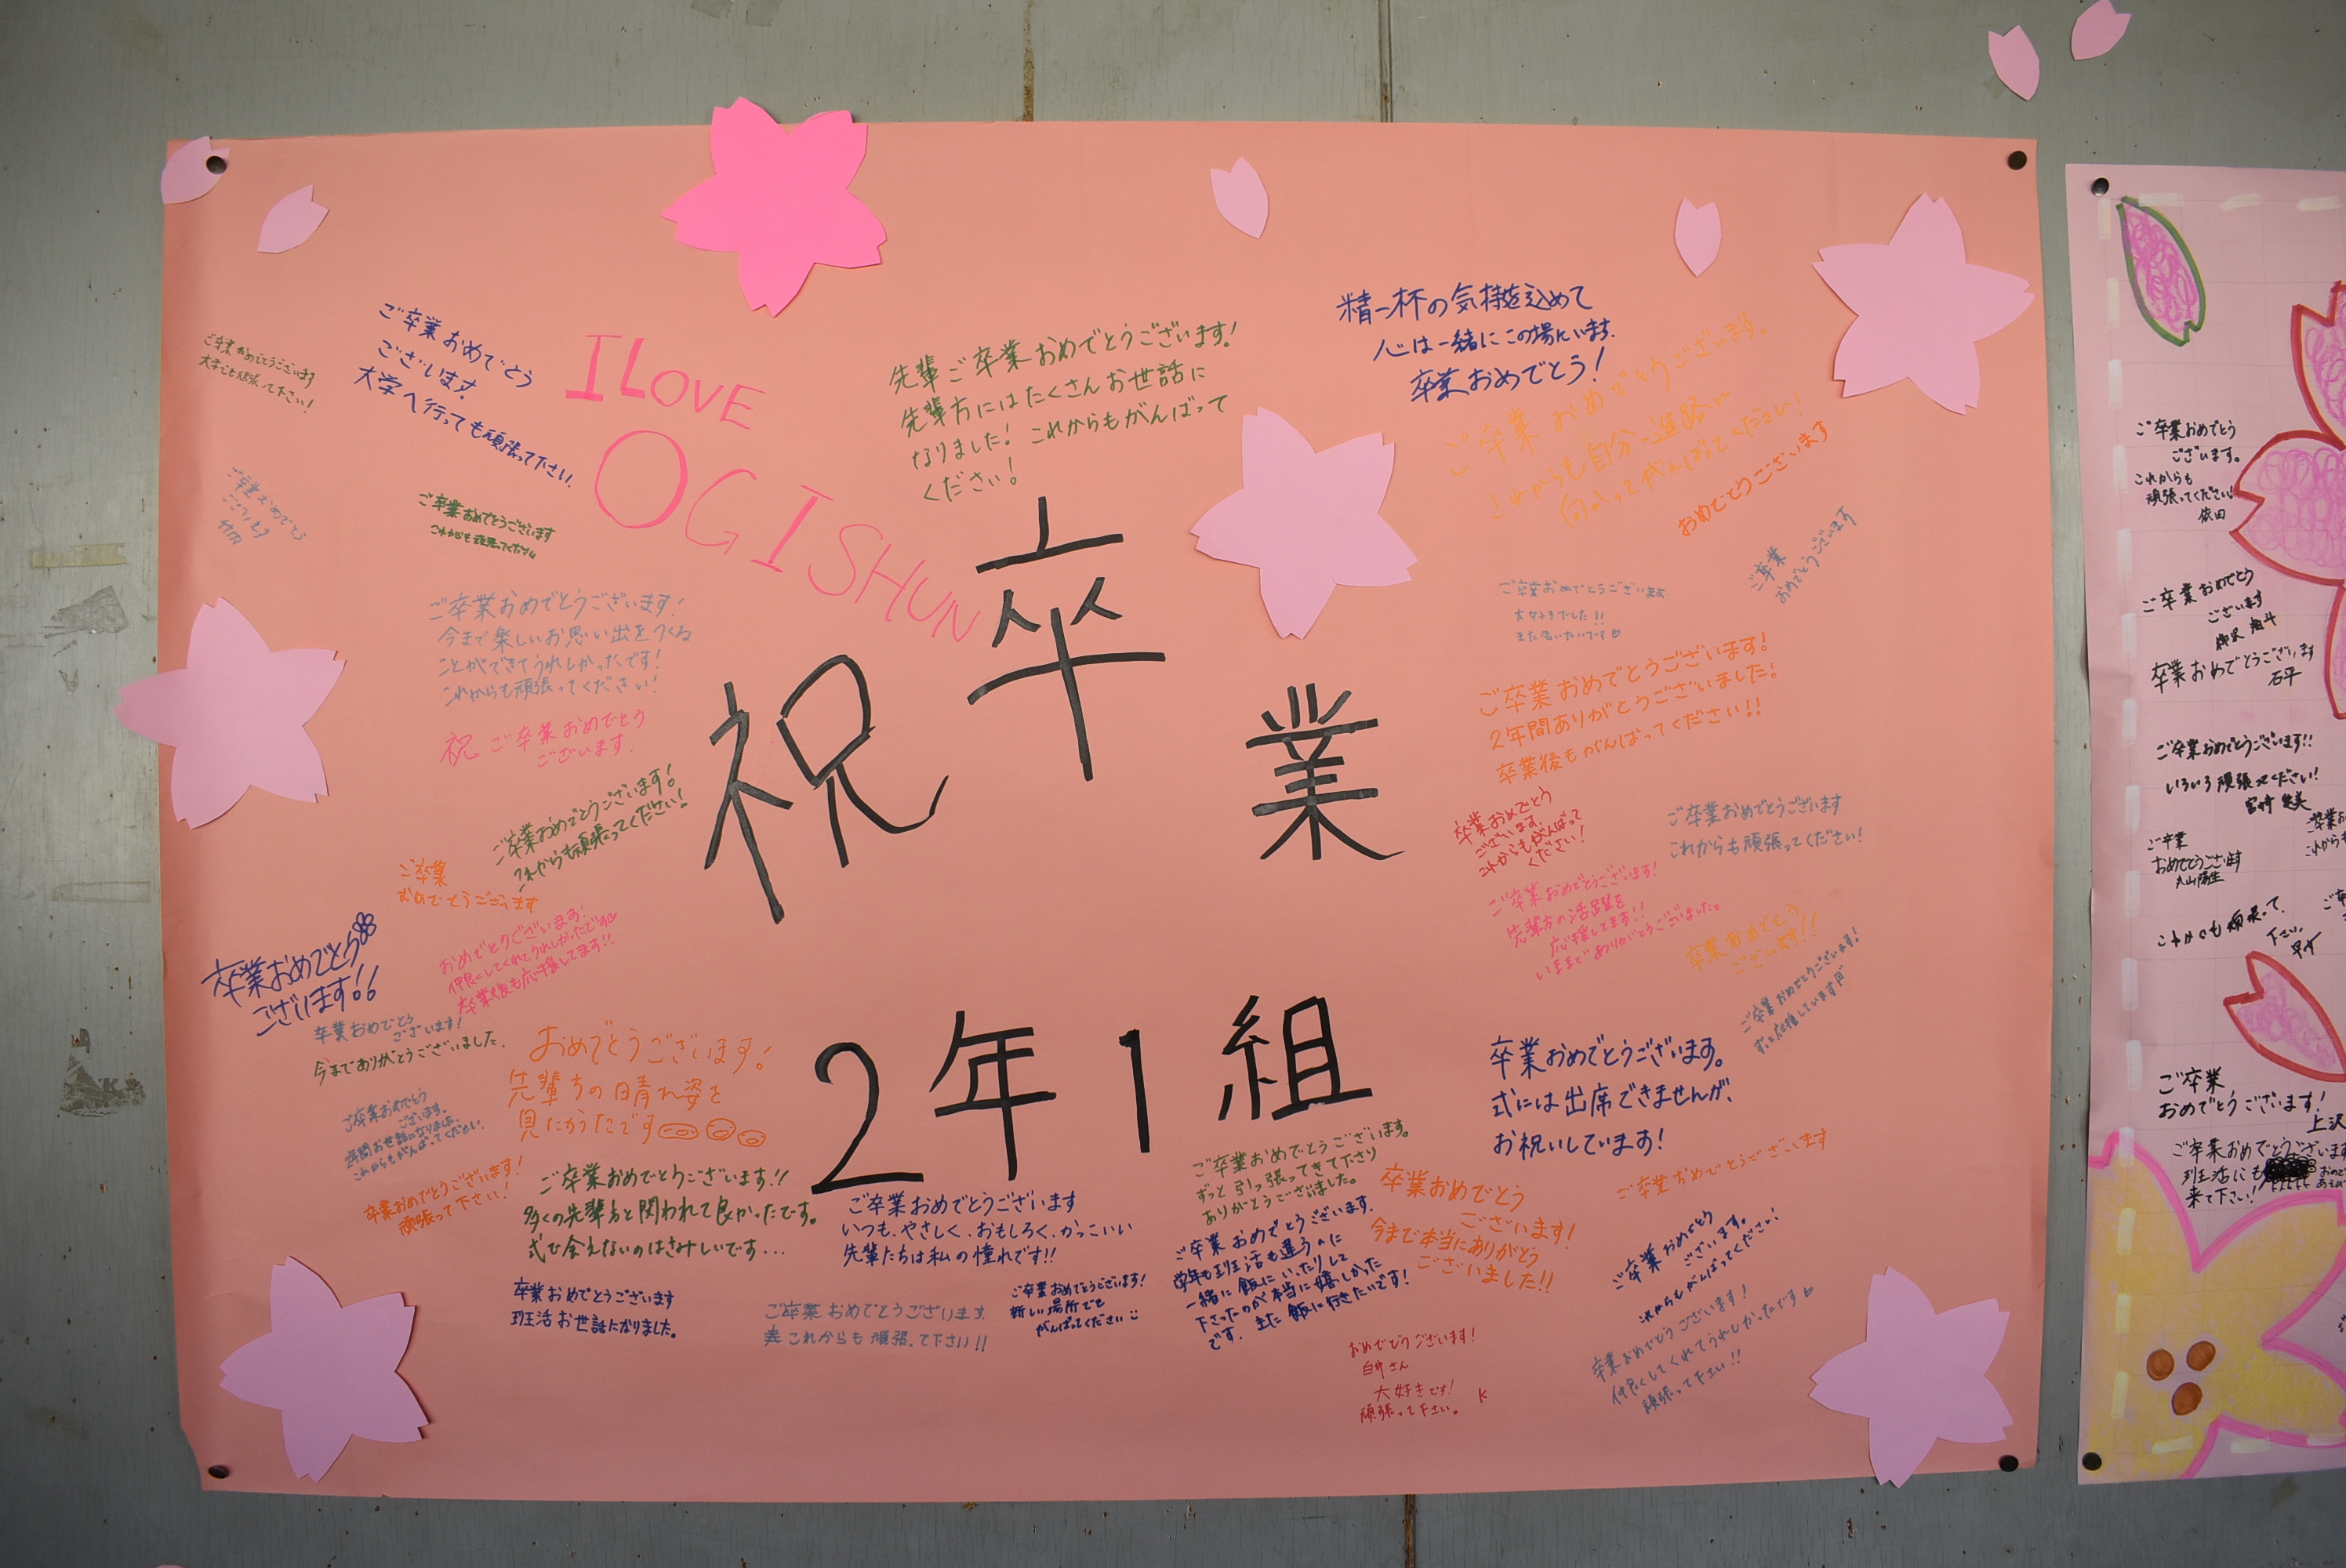 祝卒業
2年1組
I LOVE
OGISHUN
ご卒業おめでとうございます
大学でも頑張って下さい!
ご卒業おめでとう
ございます。
大学へ行っても頑張って下さい。
先輩ご卒業おめでとうございます!
先輩方にはたくさんお世話に
なりました! これからもがんばって
ください!
精一杯の気持を込めて
心は一緒にこの場にいます。
卒業おめでとう!
ご卒業おめでとうございます。
これからも自分の進路に
向かってがんばってください!
おめでとうございます
ご卒業
おめでとうございます
ご卒業おめでとう
ございます
ご卒業おめでとうございます
これからも頑張ってください
ご卒業おめでとうございます!
今まで楽しいお思い出をつくる
ことができてうれしかったです!
これからも頑張ってください!
祝 ご卒業おめでとう
ございます。
ご卒業おめでとうございます!
これからも頑張ってください!
ご卒業
おめでとうございます
おめでとうございます!
仲良くしてくれてうれしかったです
卒業後も応援してます!!
卒業おめでとう
ございます!!
卒業おめでとう
ございます!
今までありがとうございました。
ご卒業おめでとう
ございます。
2年間お世話になりました。
これからもがんばってください。
卒業おめでとうございます!
頑張って下さい!
おめでとうございます!
先輩方の晴れ姿を
見たかったです
ご卒業おめでとうございます!!
多くの先輩方と関われて良かったです。
式で会えないのはさみしいです...
卒業おめでとうございます
班活お世話になりました。
ご卒業おめでとうございます
いつも、やさしく、おもしろく、かっこいい
先輩たちは私の憧れです!!
ご卒業おめでとうございます。
これからも頑張って下さい!!
ご卒業おめでとうございます!
新しい場所でも
がんばってください
ご卒業おめでとうございます。
大好きでした!!
また会いたいです
ご卒業おめでとうございます!
2年間ありがとうございました!
卒業後もがんばってください!!
卒業おめでとう
ございます。
これからもがんばって
ください!
ご卒業おめでとうございます
これからも頑張ってください!
ご卒業おめでとうございます!
先輩方の活躍を
応援してます!!
いままでありがとうございました。
卒業おめでとう
ございます!!
ご卒業おめでとうございます!
ずっと応援しています
卒業おめでとうございます。
式には出席できませんが、
お祝いしています!
ご卒業おめでとうございます。
ずっと引っ張ってきて下さり
ありがとうございました。
ご卒業おめでとうございます。
学年も班活も違うのに
一緒に飯にいったりして
下さったのが本当に嬉しかった
です。また飯に行きたいです!
卒業おめでとう
ございます!
今まで本当にありがとう
ございました!!
ご卒業おめでとうございます
ご卒業おめでとう
ございます。
これからもがんばってください!
卒業おめでとうございます!
仲良くしてくれてうれしかったです
頑張って下さい!!
おめでとうございます!
白井さん
大好きです!
頑張って下さい。 K
ご卒業おめでとう
ございます。
これからも
頑張ってください!
依田
ご卒業おめでとう
ございます
卒業おめでとうございます
石平
ご卒業おめでとうございます!!
いろいろ頑張ってください!
ご卒業
おめでとうございます
これからも頑張って
下さい。
ご卒業
おめでとうございます!
上沢
ご卒業おめでとうございます
班活にも
来て下さい!